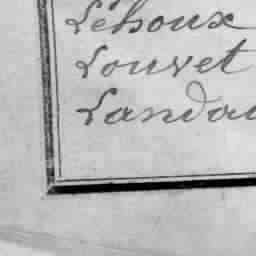 Léhoux
Louvet
Landau